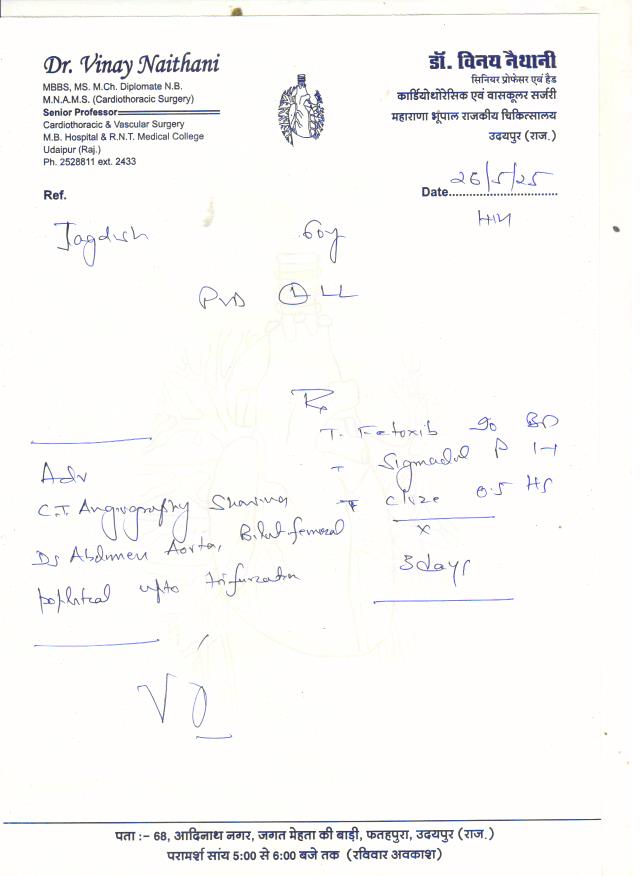 Dr. Vinay Naithani
MBBS, MS. M.Ch. Diplomate N.B.
M.N.A.M.S. (Cardiothoracic Surgery)
Senior Professor
Cardiothoracic & Vascular Surgery
M.B. Hospital & R.N.T. Medical College
Udaipur (Raj.)
Ph. 2528811 ext. 2433
डॉ. विनय नैथानी
सिनियर प्रोफेसर एवं हैड
कार्डियोथोरेसिक एवं वासकूलर सर्जरी
महाराणा भूंपाल राजकीय चिकित्सालय
उदयपुर (राज.)
Ref.
Date 26/5/25
Jagdish 60y
PVD LL
Rx
T. Etoxib 90 BD
T Sigmadol P 1-1
T Clize 0.5 HS
x
3 days
Adv
C.T. Angiography Showing
Ds Abdomen Aorta, Bilat femoral
popliteal upto trifurcation
पता :– 68, आदिनाथ नगर, जगत मेहता की बाड़ी, फतहपुरा, उदयपुर (राज.)
परामर्श सांय 5:00 से 6:00 बजे तक (रविवार अवकाश)